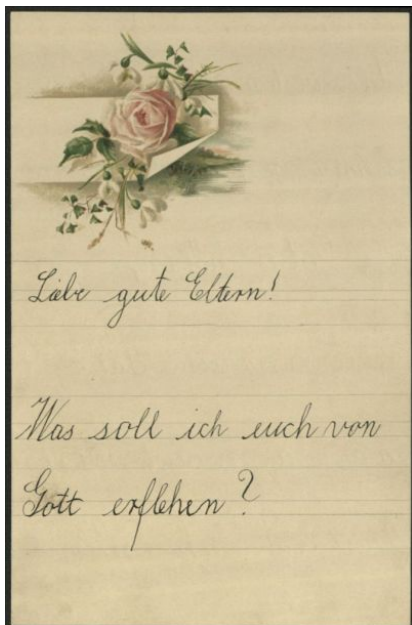 Liebe gute Eltern!
Was soll ich euch von
Gott erflehen?